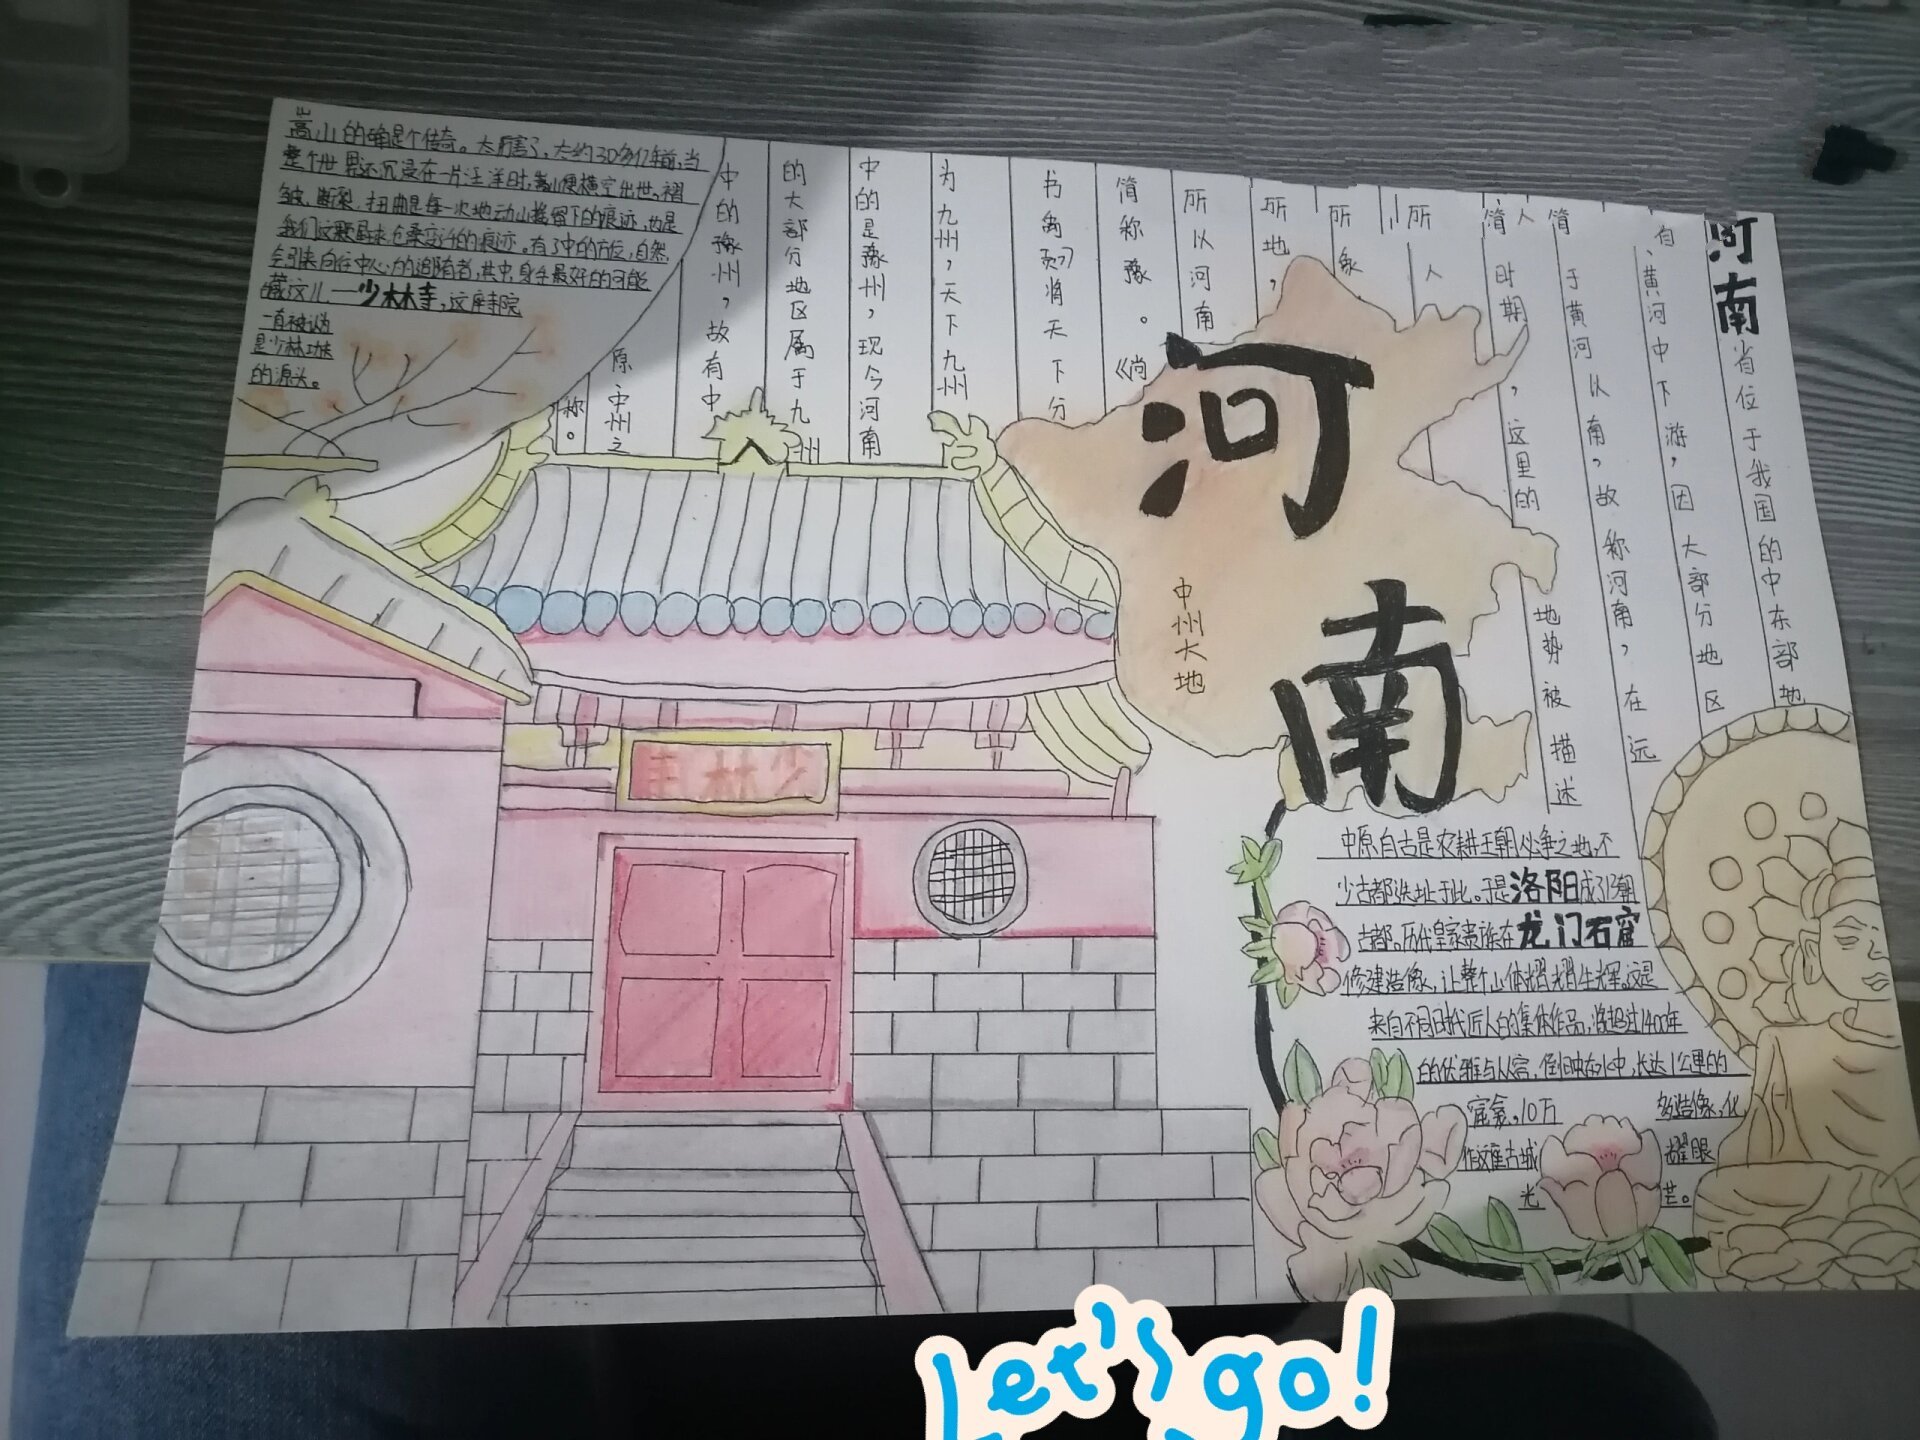 嵩山的确是个传奇。太厉害了,大约30多亿年前,当
整个世界还沉浸在一片汪洋时,嵩山便横空出世。褶
皱、断裂、扭曲是每一次地动山摇留下的痕迹,也是
我们这颗星球沧桑变迁的痕迹。有了中的方位,自然
会引来向往中心力的追随者,其中,身手最好的可能
藏这儿—少林寺,这座寺院
一直被认为
是少林功夫
的源头。
河南省位于我国的中东部地
自、黄河中下游,因大部分地区
简于黄河以南,故称河南,在远
时期,这里的地势被描述
所人
所象
所地,
所以河南
简称豫。《尚
书禹贡》将天下分
为九州,天下九州
中的是豫州,现今河南
的大部分地区属于九州
中的豫州,故有中
原中州之
称。
河南
中州大地
少林寺
中原自古是农耕王朝必争之地,不
少古都选址于此。于是洛阳成了13朝
古都。历代皇家贵族在龙门石窟
修建造像,让整个山体熠熠生辉。这是
来自不同时代匠人的集体作品,将超过1400年
的优雅与从容,倒映在水中,长达1公里的
窟龛,10万多造像,化
作这座古城耀眼
光芒。
Let's go!